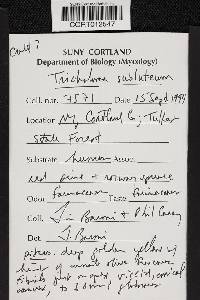 CORT012547
Cult?
SUNY CORTLAND
Department of Biology (Mycology)
Tricholoma subluteum
Coll. nor. 7571 Date 15 Sept 1994
Location NY, Cortland Co; Tuller
State Forest
Substrate humus Assoc.
red pine + norway spruce
Odor farinaceous Taste farinaceous
Coll. T. Baroni + Phil
Det. T. Baroni
pileus deep golden yellow w/
olive
fibrils viscid, conical